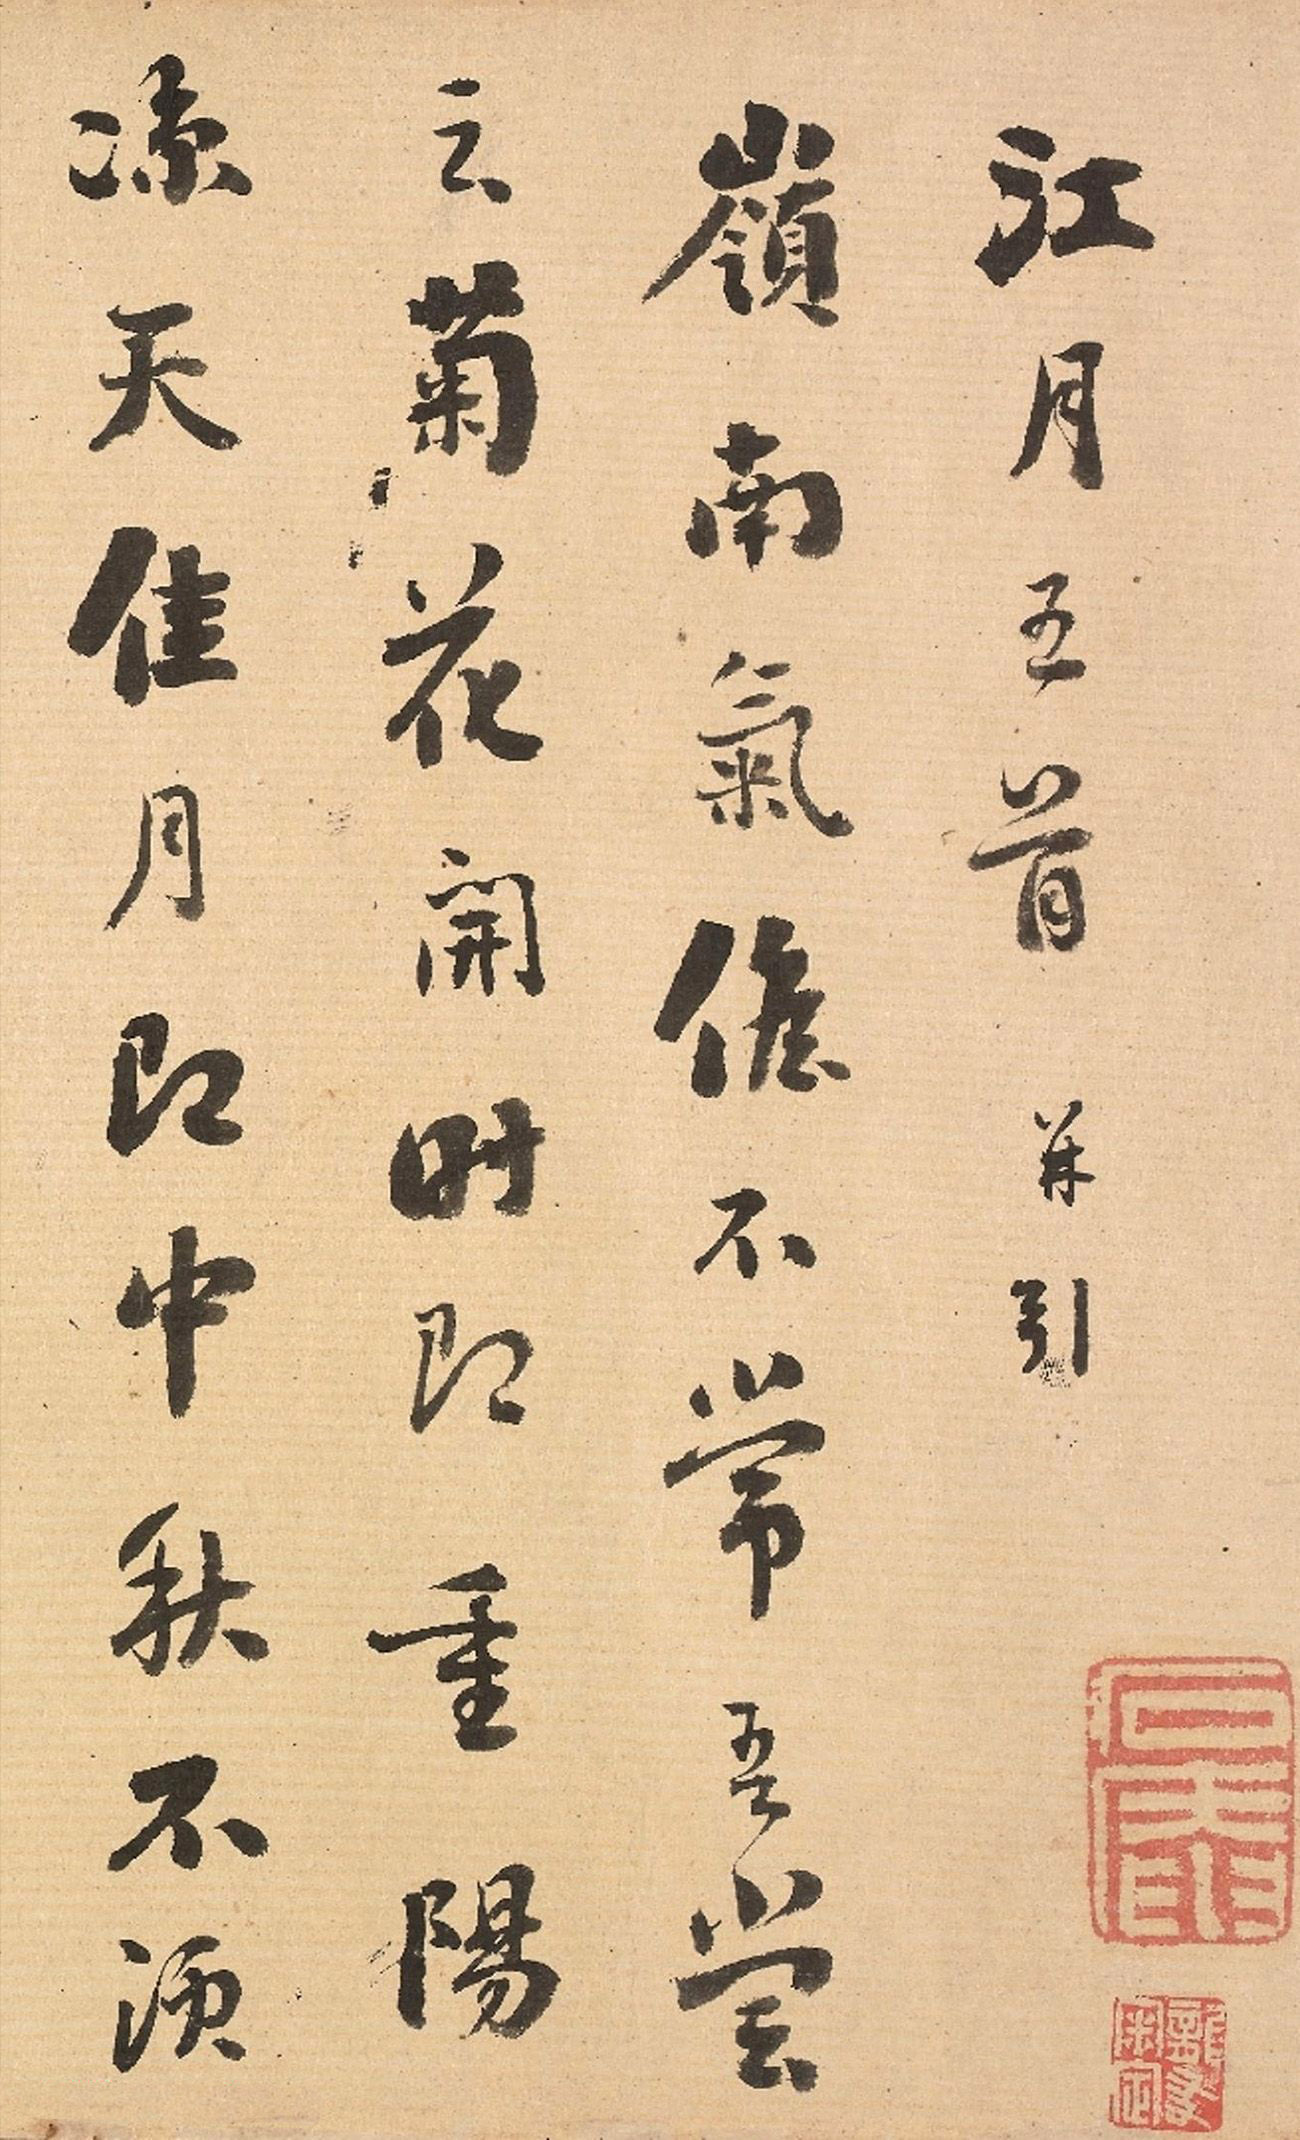 江月五首 并引
嶺南氣候不常吾嘗
云菊花開時即重陽
凉天佳月即中秋不須